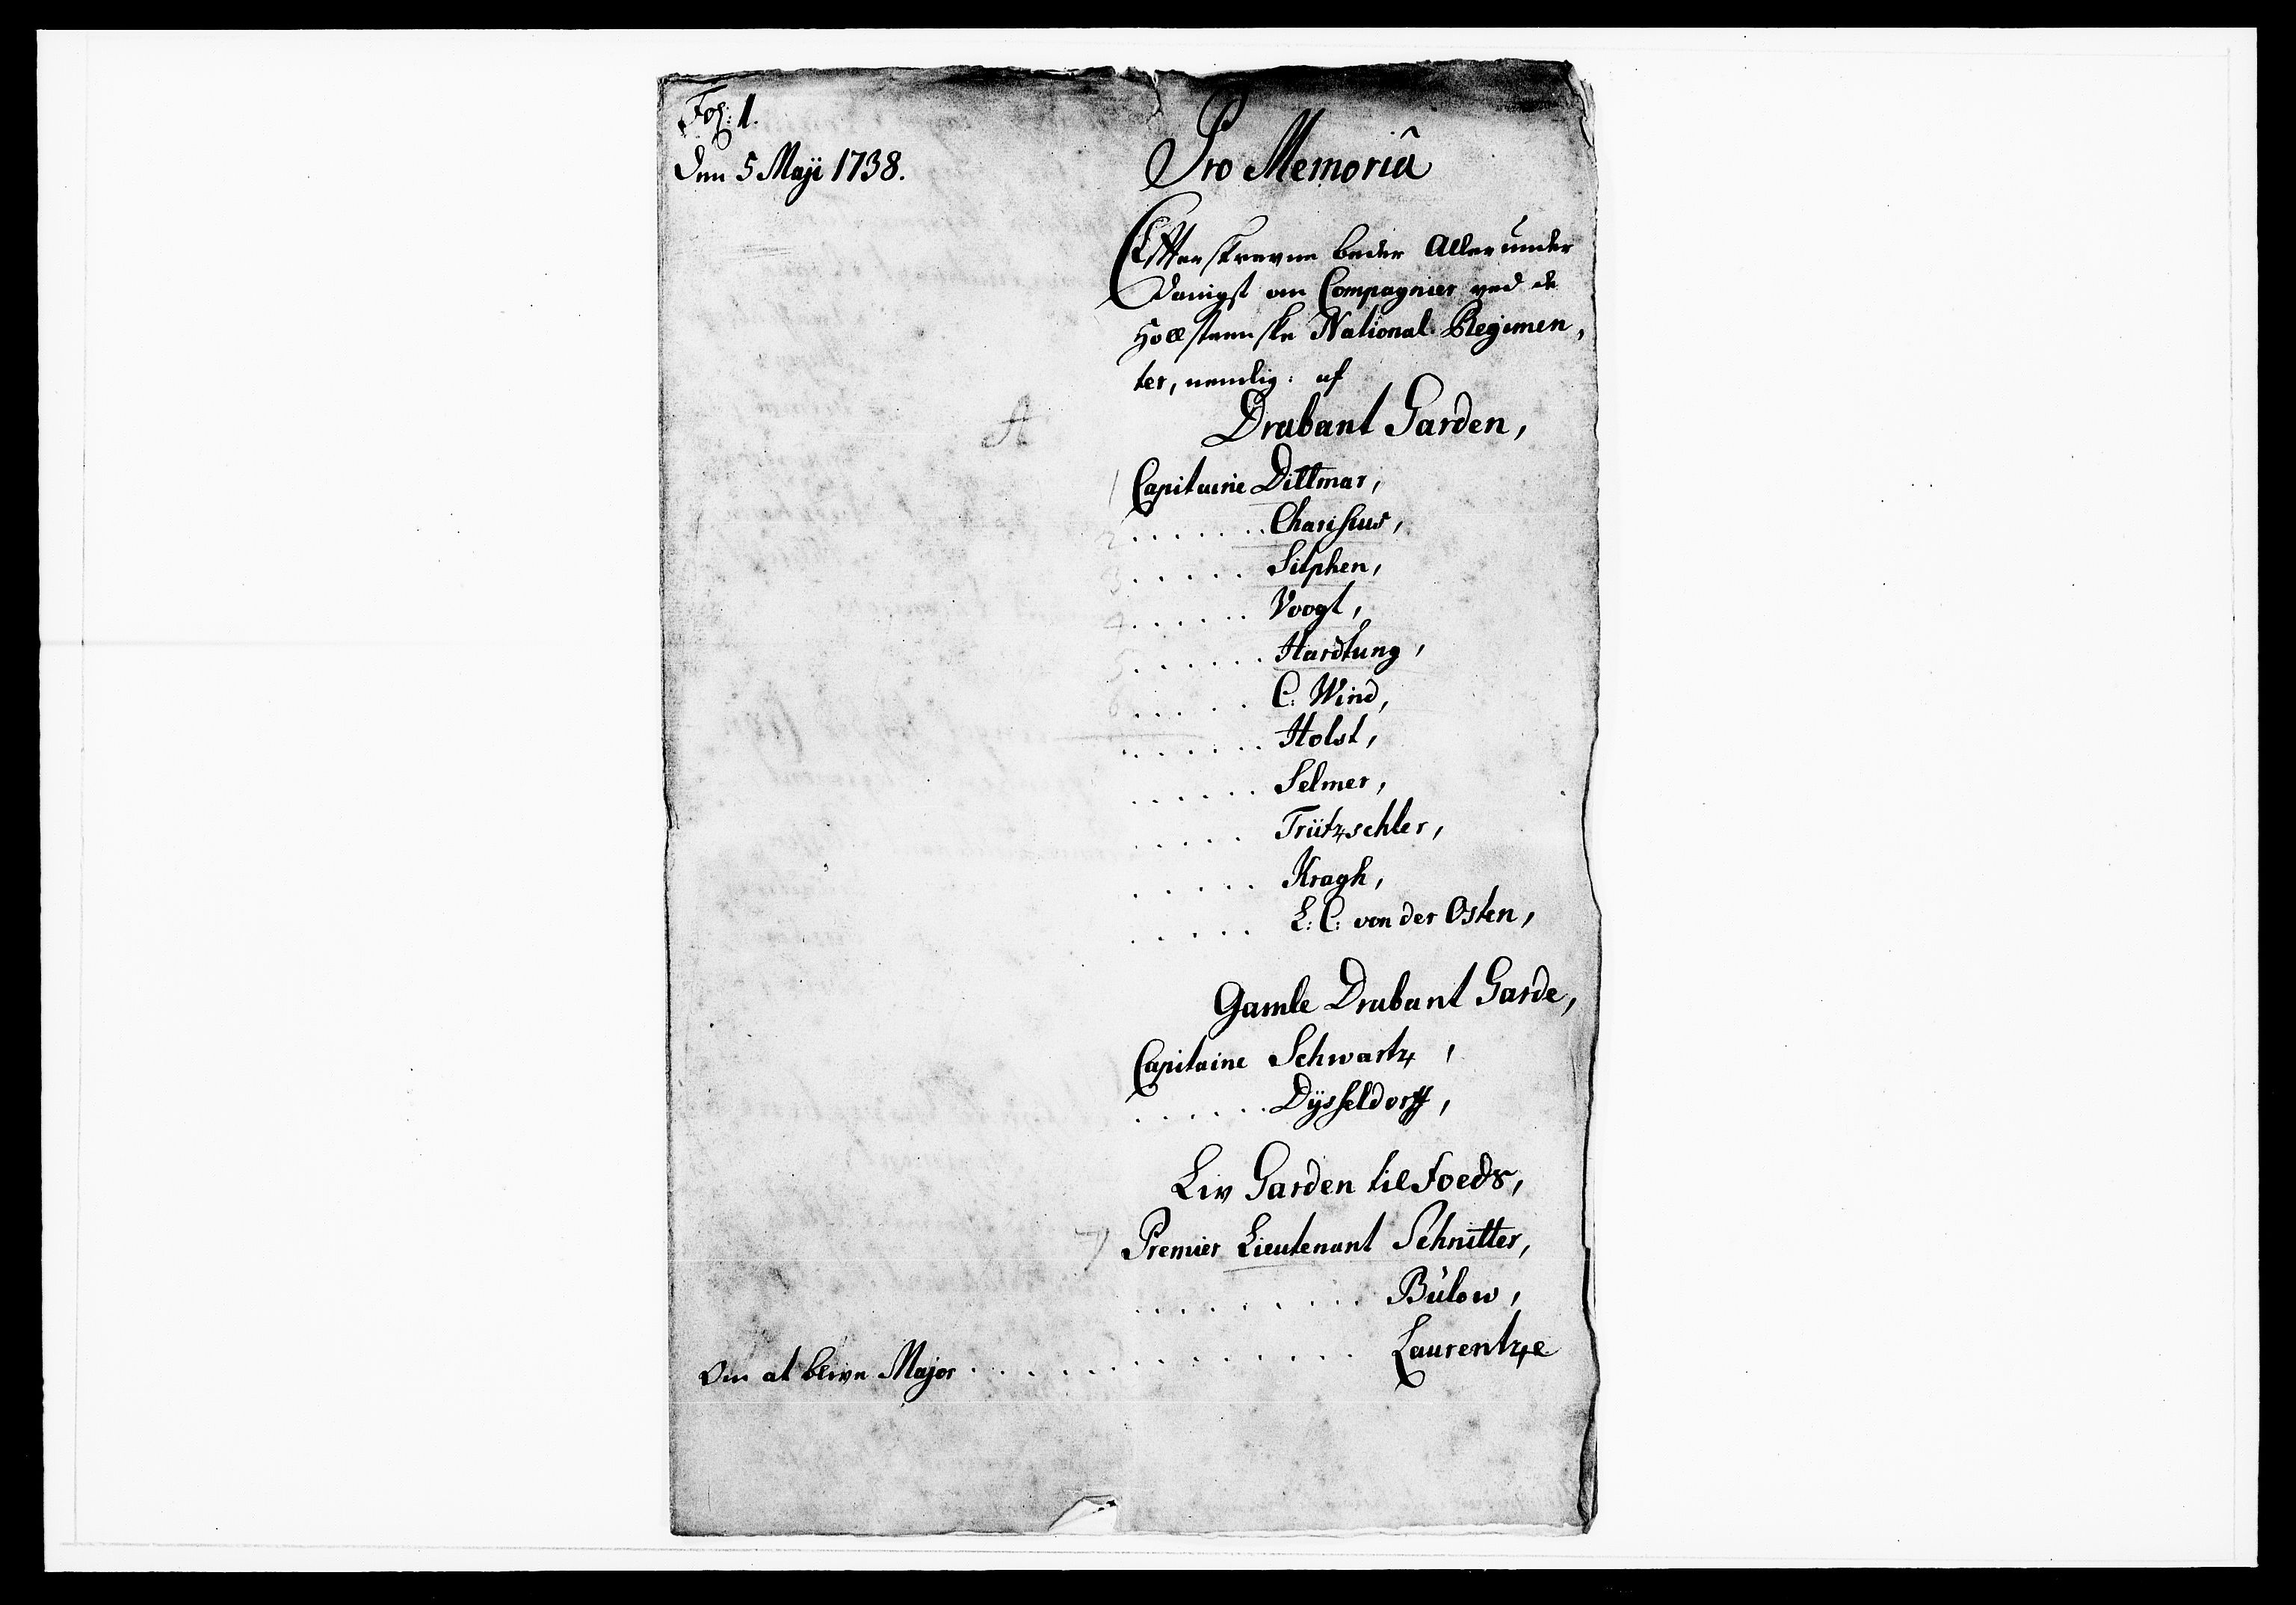 Fol: 1.
den 5 Maji 1738.
Pro Memoriâ
Efterskrevne beder Allerunder
danigst om Compagnier ved de
Hollsteenske National Regimen,
ter, nemlig: af
A
Drabant Garden,
1 Capitaine Dittmar,
2 . . . . . . . Charisius,
3 . . . . . Sitphen,
4 . . . . . . Voogt,
5 . . . . . . Hardtung,
6 . . . . . C: Wind,
. . . . . . Holst,
. . . . . . Selmer,
. . . . . Trützschler,
. . . . . Kragh,
. . . . . L: C: von der Osten,
Gamle Drabant Garde,
Capitaine Schwartz,
. . . . . . Dÿsseldorff,
Liv Garden til Foeds,
7 Premier Lieutenant Schnitter,
. . . . . . . . . Bülow,
om at blive Major . . . . . . . . . . . . . . Laurentze